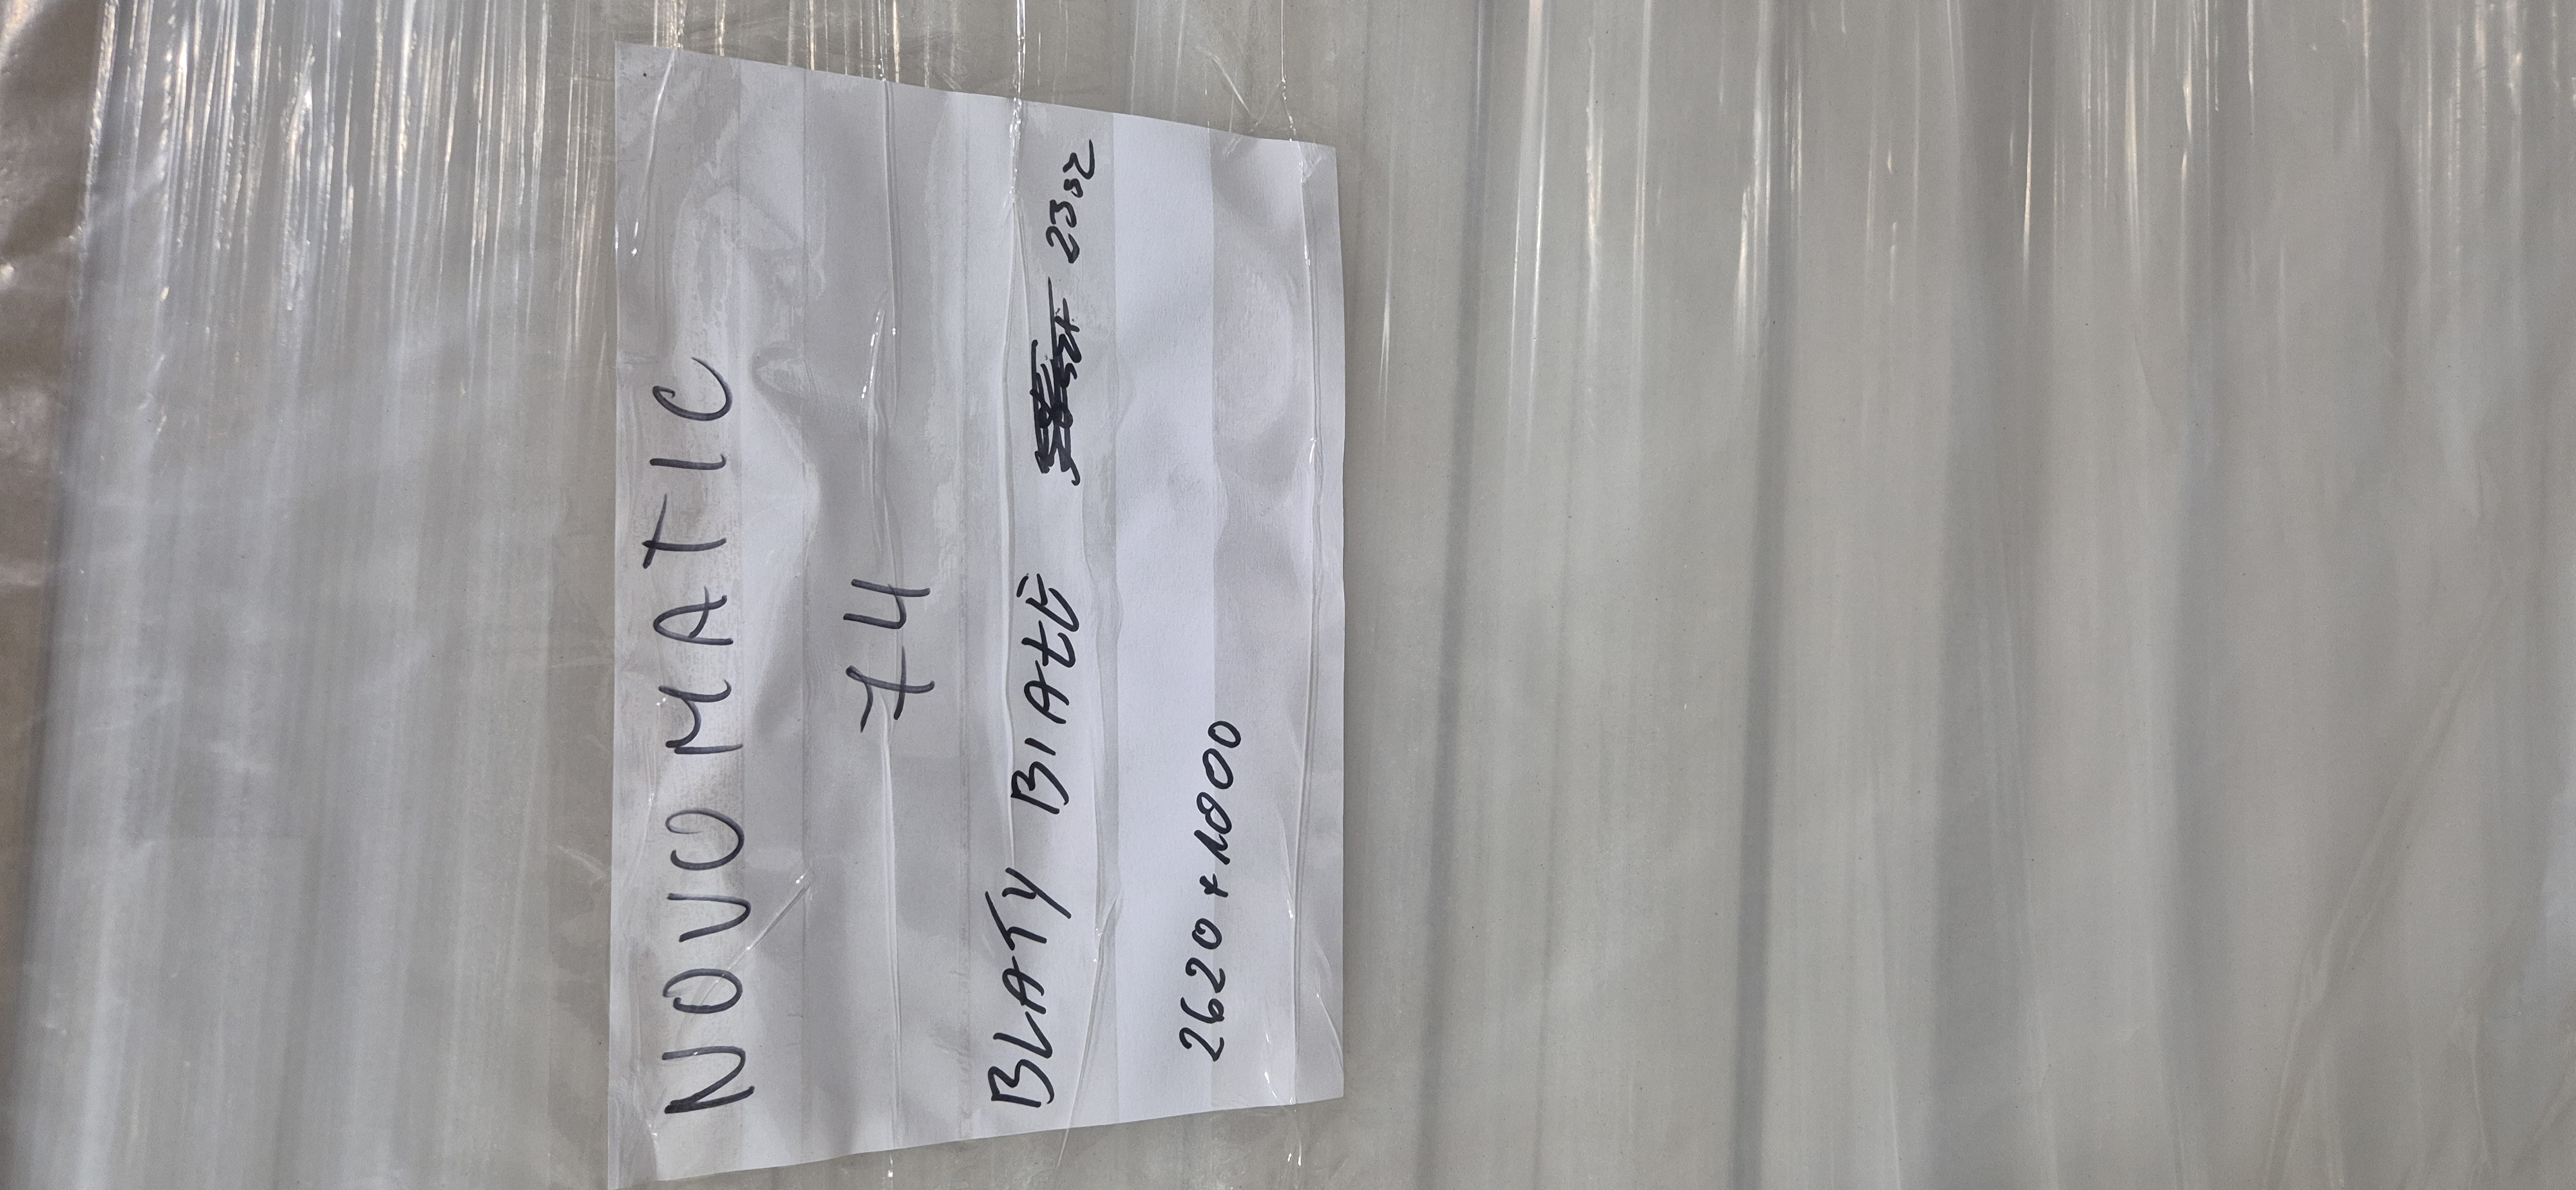 NOVOMATIC
74
BLATY BIAŁE 23sz
2620x1000